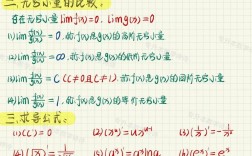 二.无穷小量的比较:
若在无穷小量 lim f(x)=0. lim g(x)=0
(1) lim f(x)/g(x) = 0. 称f(x)是g(x)的高阶无穷小量
(2) lim f(x)/g(x) = ∞. 称f(x)是g(x)的低阶无穷小量
(3) lim f(x)/g(x) = C (C≠0且C≠1). 称f(x)是g(x)的同阶无穷小量
(4) lim f(x)/g(x) = 1. 称f(x)是g(x)的等价无穷小量
三.求导公式:
(1) (C)'=0 (2) (x^a)'=ax^(a-1) (3) (1/x)'=-1/x²
(5) (a^x)'=a^x lna (6) (e^x)'=e^x